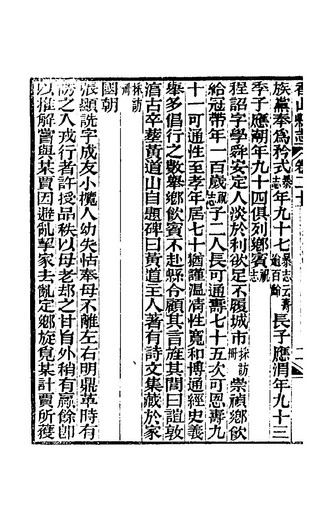 香山縣志 卷二十
族黨奉爲矜式暴志年九十七暴志云壽逾百齡長子應渭年九十三
季子應朝年九十四俱列鄉賓祝志
程詔字學舜安定人淡於利欲足不履城市採訪冊崇禎鄉飲
給冠帶年一百歲祝志子二人長可通壽七十五次可恩壽九
十一可通性至孝年居七十猶謹溫凊性寬和博通經史義
舉多倡行之數舉鄉飲賓不赴縣令顧其言旌其閭曰誼敦
湻古卒葬黃道山自題碑曰黃道主人著有詩文集藏於家
採訪冊
國朝
張顯洗字成友小欖人幼失怙奉母不離左右明鼎革時有
謗之入戎行者許授品秩以母老却之甘旨外稍有贏餘卽
以推解嘗與某賈因避亂挈家去亂定鄉旋覓某計賈所獲